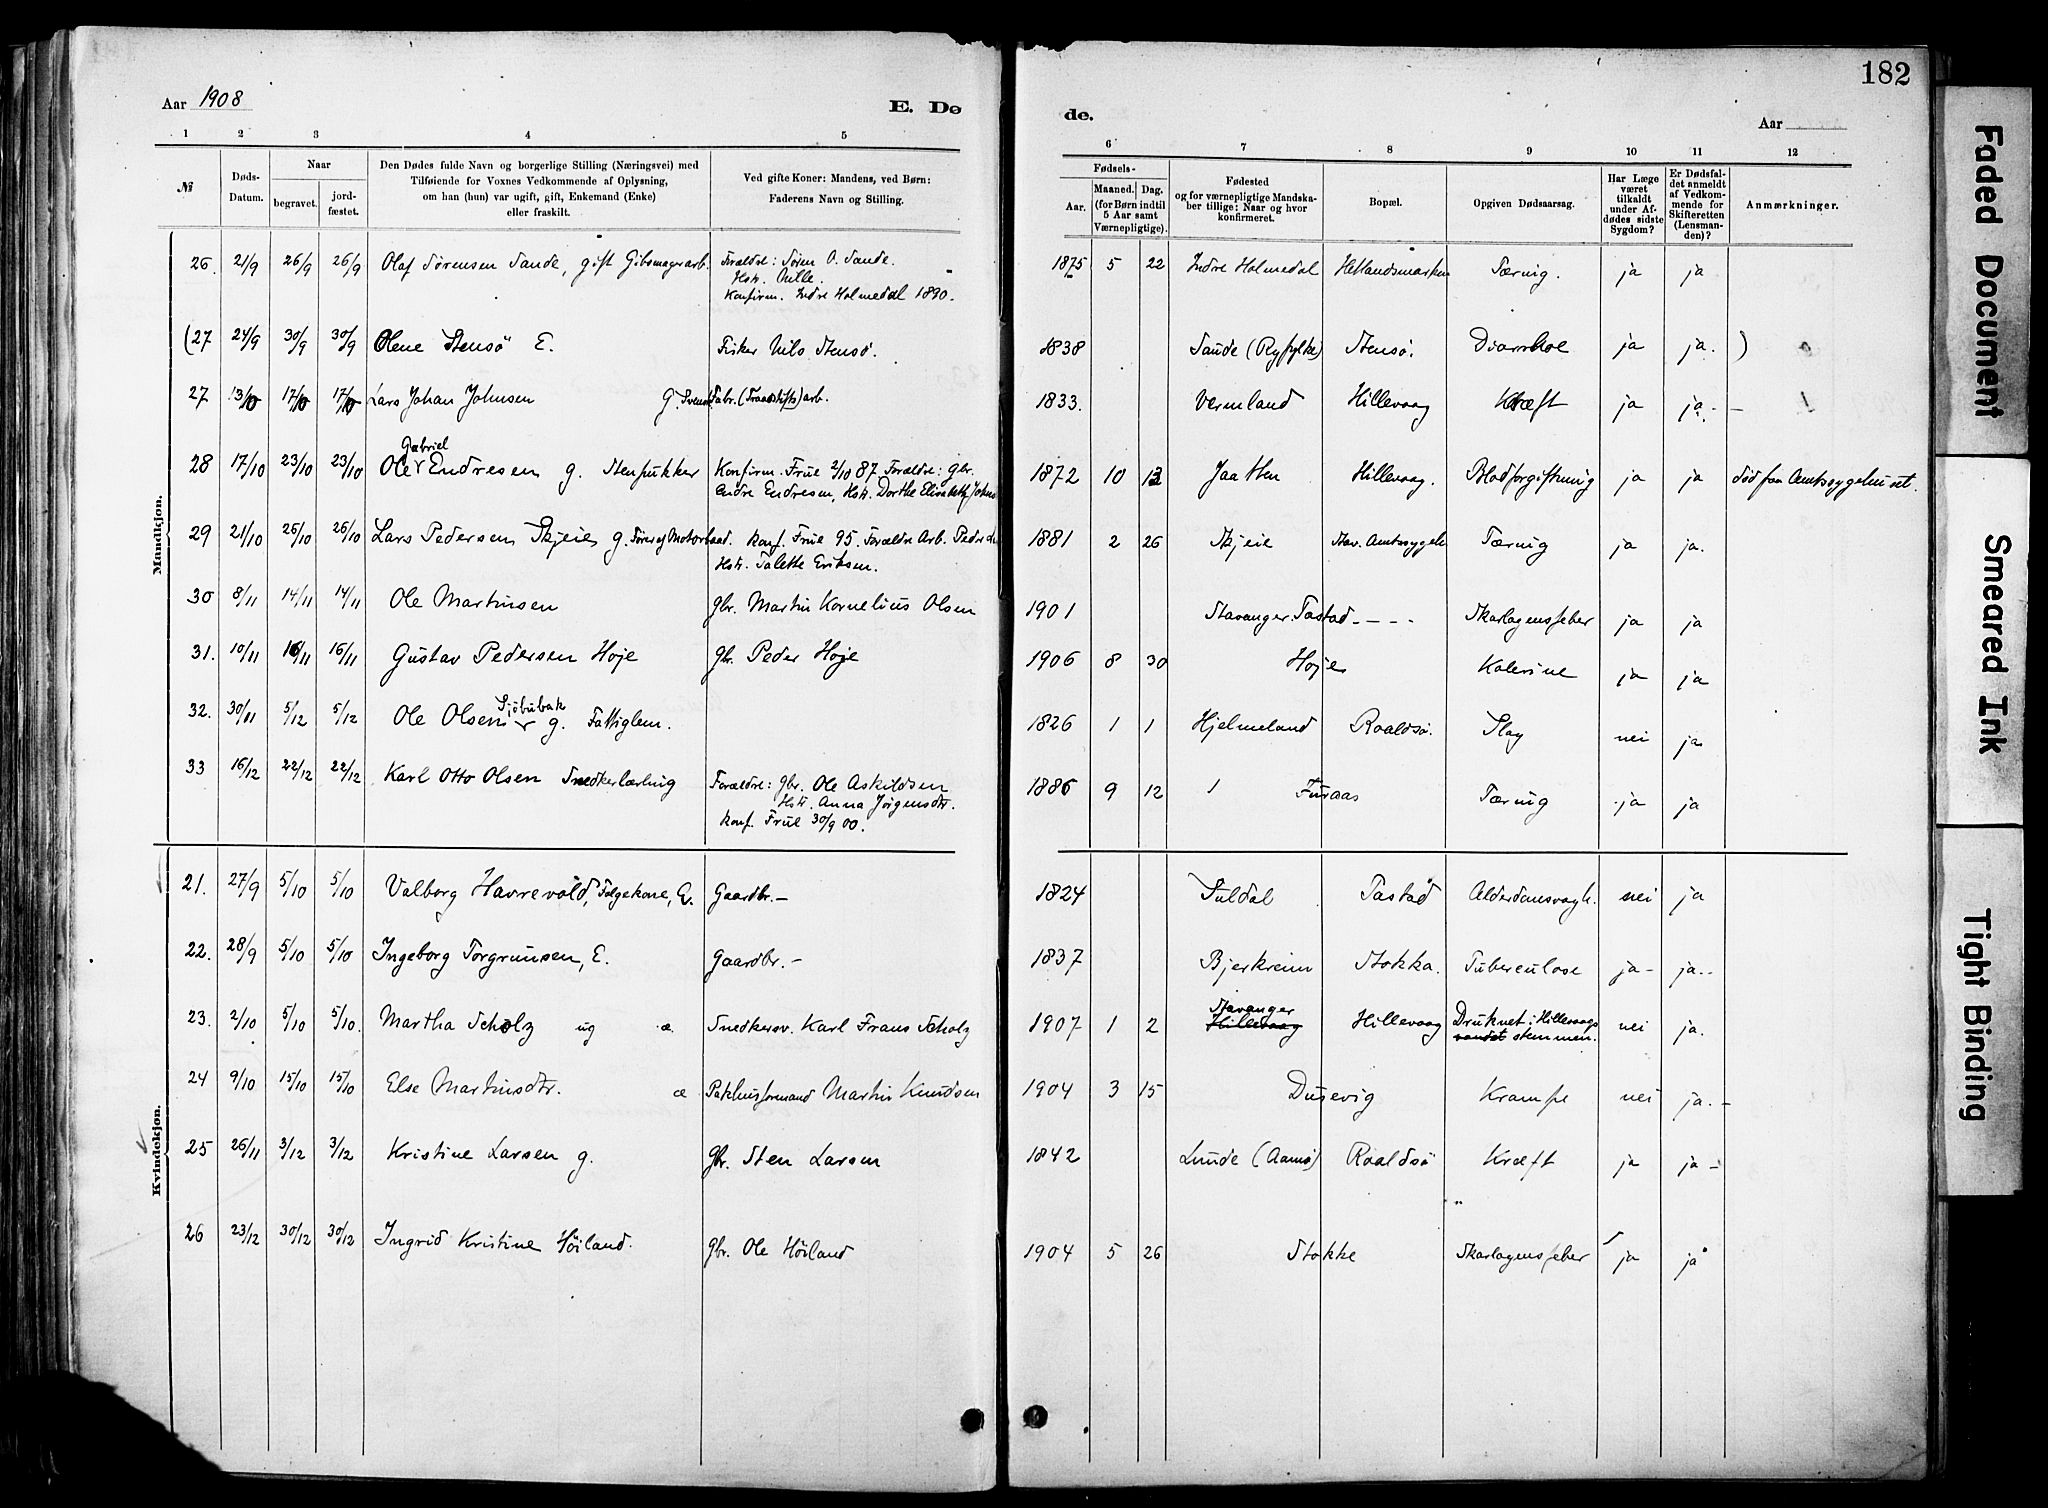 182
Aar 1908
E. Dø
de.
Aar
1 2 3 4 5 6 7 8 9 10 11 12
№
Døds-Datum.
Naar
begravet.
jord-fæstet.
Den Dødes fulde Navn og borgerlige Stilling (Næringsvei) med
Tilføiende for Voxnes Vedkommende af Oplysning,
om han (hun) var ugift, gift, Enkemand (Enke)
eller fraskilt.
Ved gifte Koner: Mandens, ved Børn:
Faderens Navn og Stilling.
Fødsels-
Aar.
Maaned. Dag.
(for Børn indtil
5 Aar samt
Værnepligtige).
Fødested
og for værnepligtige Mandska-
ber tillige: Naar og hvor
konfirmeret.
Bopæl.
Opgiven Dødsaarsag.
Har Læge
været
tilkaldt
under Af-
dødes sidste
Sygdom?
Er Dødsfal-
det anmeldt
af Vedkom-
mende for
Skifteretten
(Lensman-
den)?
Anmærkninger.
Mandkjøn.
26. 21/9 26/9 26/9 Olaf Sørensen Sande, gift Gibsmagerarb. Forældre: Søren O. Sande. 1875 5 22 Indre Holmedal Hetlandsmarken Tæring. ja ja
Hstr.
Konfirm. Indre Holmedal 1890.
(27 24/9 30/9 30/9 Olene Stensö E. Fisker Nils Stensö. 1838 Sande (Ryfylke) Stensö. ja ja. )
27 13/10 17/10 17/10 Lars Johan Johnsen G. Svensk Fabr. (Traadstifts) arb. 1833. Vermland Hillevaag Kræft ja ja. -
Gabriel
28 17/10 23/10 23/10 Ole Endresen g. Stenpukker Konfirm. Frue 2/10 87 Forældre: gbr. 1872 10 Jaatten Hillevaag. Blodforgiftning ja ja død paa Amtssygehuset.
Endre Endresen, Hstr. Dorthe Elisabeth Johns
29 21/10 26/10 26/10 Lars Pedersen Skjeie g. Fører af Motorbaad. Konf. Frue 95. Forældre Arb. Peder 1881 2 26 Skjeie Stav. Amtssygeh. Tæring ja ja.
Hstr. Talette Eriksen.
30 8/11 14/11 14/11 Ole Martinsen gbr. Martin Kornelius Olsen 1901 Stavanger. Tastad - - - - Skarlagensfeber ja ja
31. 10/11 16/11 16/11 Gustav Pedersen Hoje gbr. Peder Hoje 1906 8 30 Hoje Kolerine ja ja
Sjöbubak
32. 30/11 5/12 5/12 Ole Olsen g. Fattiglem. 1826 1 1 Hjelmeland Roaldsö. Slag nei ja
33 16/12 22/12 22/12 Karl Otto Olsen Snedkerlærling Forældre: Gbr. Ole Askildsen 1886 9 12 Furaas Tæring ja ja
Hstr. Anna Jörgensdtr.
Konf. Frue 30/9 00.
Kvindekjøn.
21. 27/9 5/10 5/10 Valborg Havrevold, Folgekone, E. Gaardbr. - 1824 Suldal Tastad Alderdomsvagh. nei ja
22. 28/9 5/10 5/10 Ingeborg Torgrimsen, E. Gaardbr. - 1837 Bjerkreim Stokka. Tuberculose ja - ja. -
23. 2/10 5/10 5/10. Martha Scholz ug æ Snedkersv. Karl Frans Scholz 1907 1 2 Stavanger Hillevaag Hillevaag Druknet i Hillevaags nei ja.
vandet stemmen.
24 9/10 15/10 15/10 Else Martinsdtr. æ Pakhusformand Martin Knudsen 1904 3 15 Dusevig Krampe nei ja. -
25 26/11 3/12 3/12 Kristine Larsen g. gbr. Sten Larsen 1842 Lunde (Aamö) Roaldsö Kræft ja ja -
26 23/12 30/12 30/12 Ingrid Kristine Höiland. gbr. Ole Höiland 1904 5 26 Stokke Skarlagensfeber ja ja
Faded Document
Smeared Ink
Tight Binding